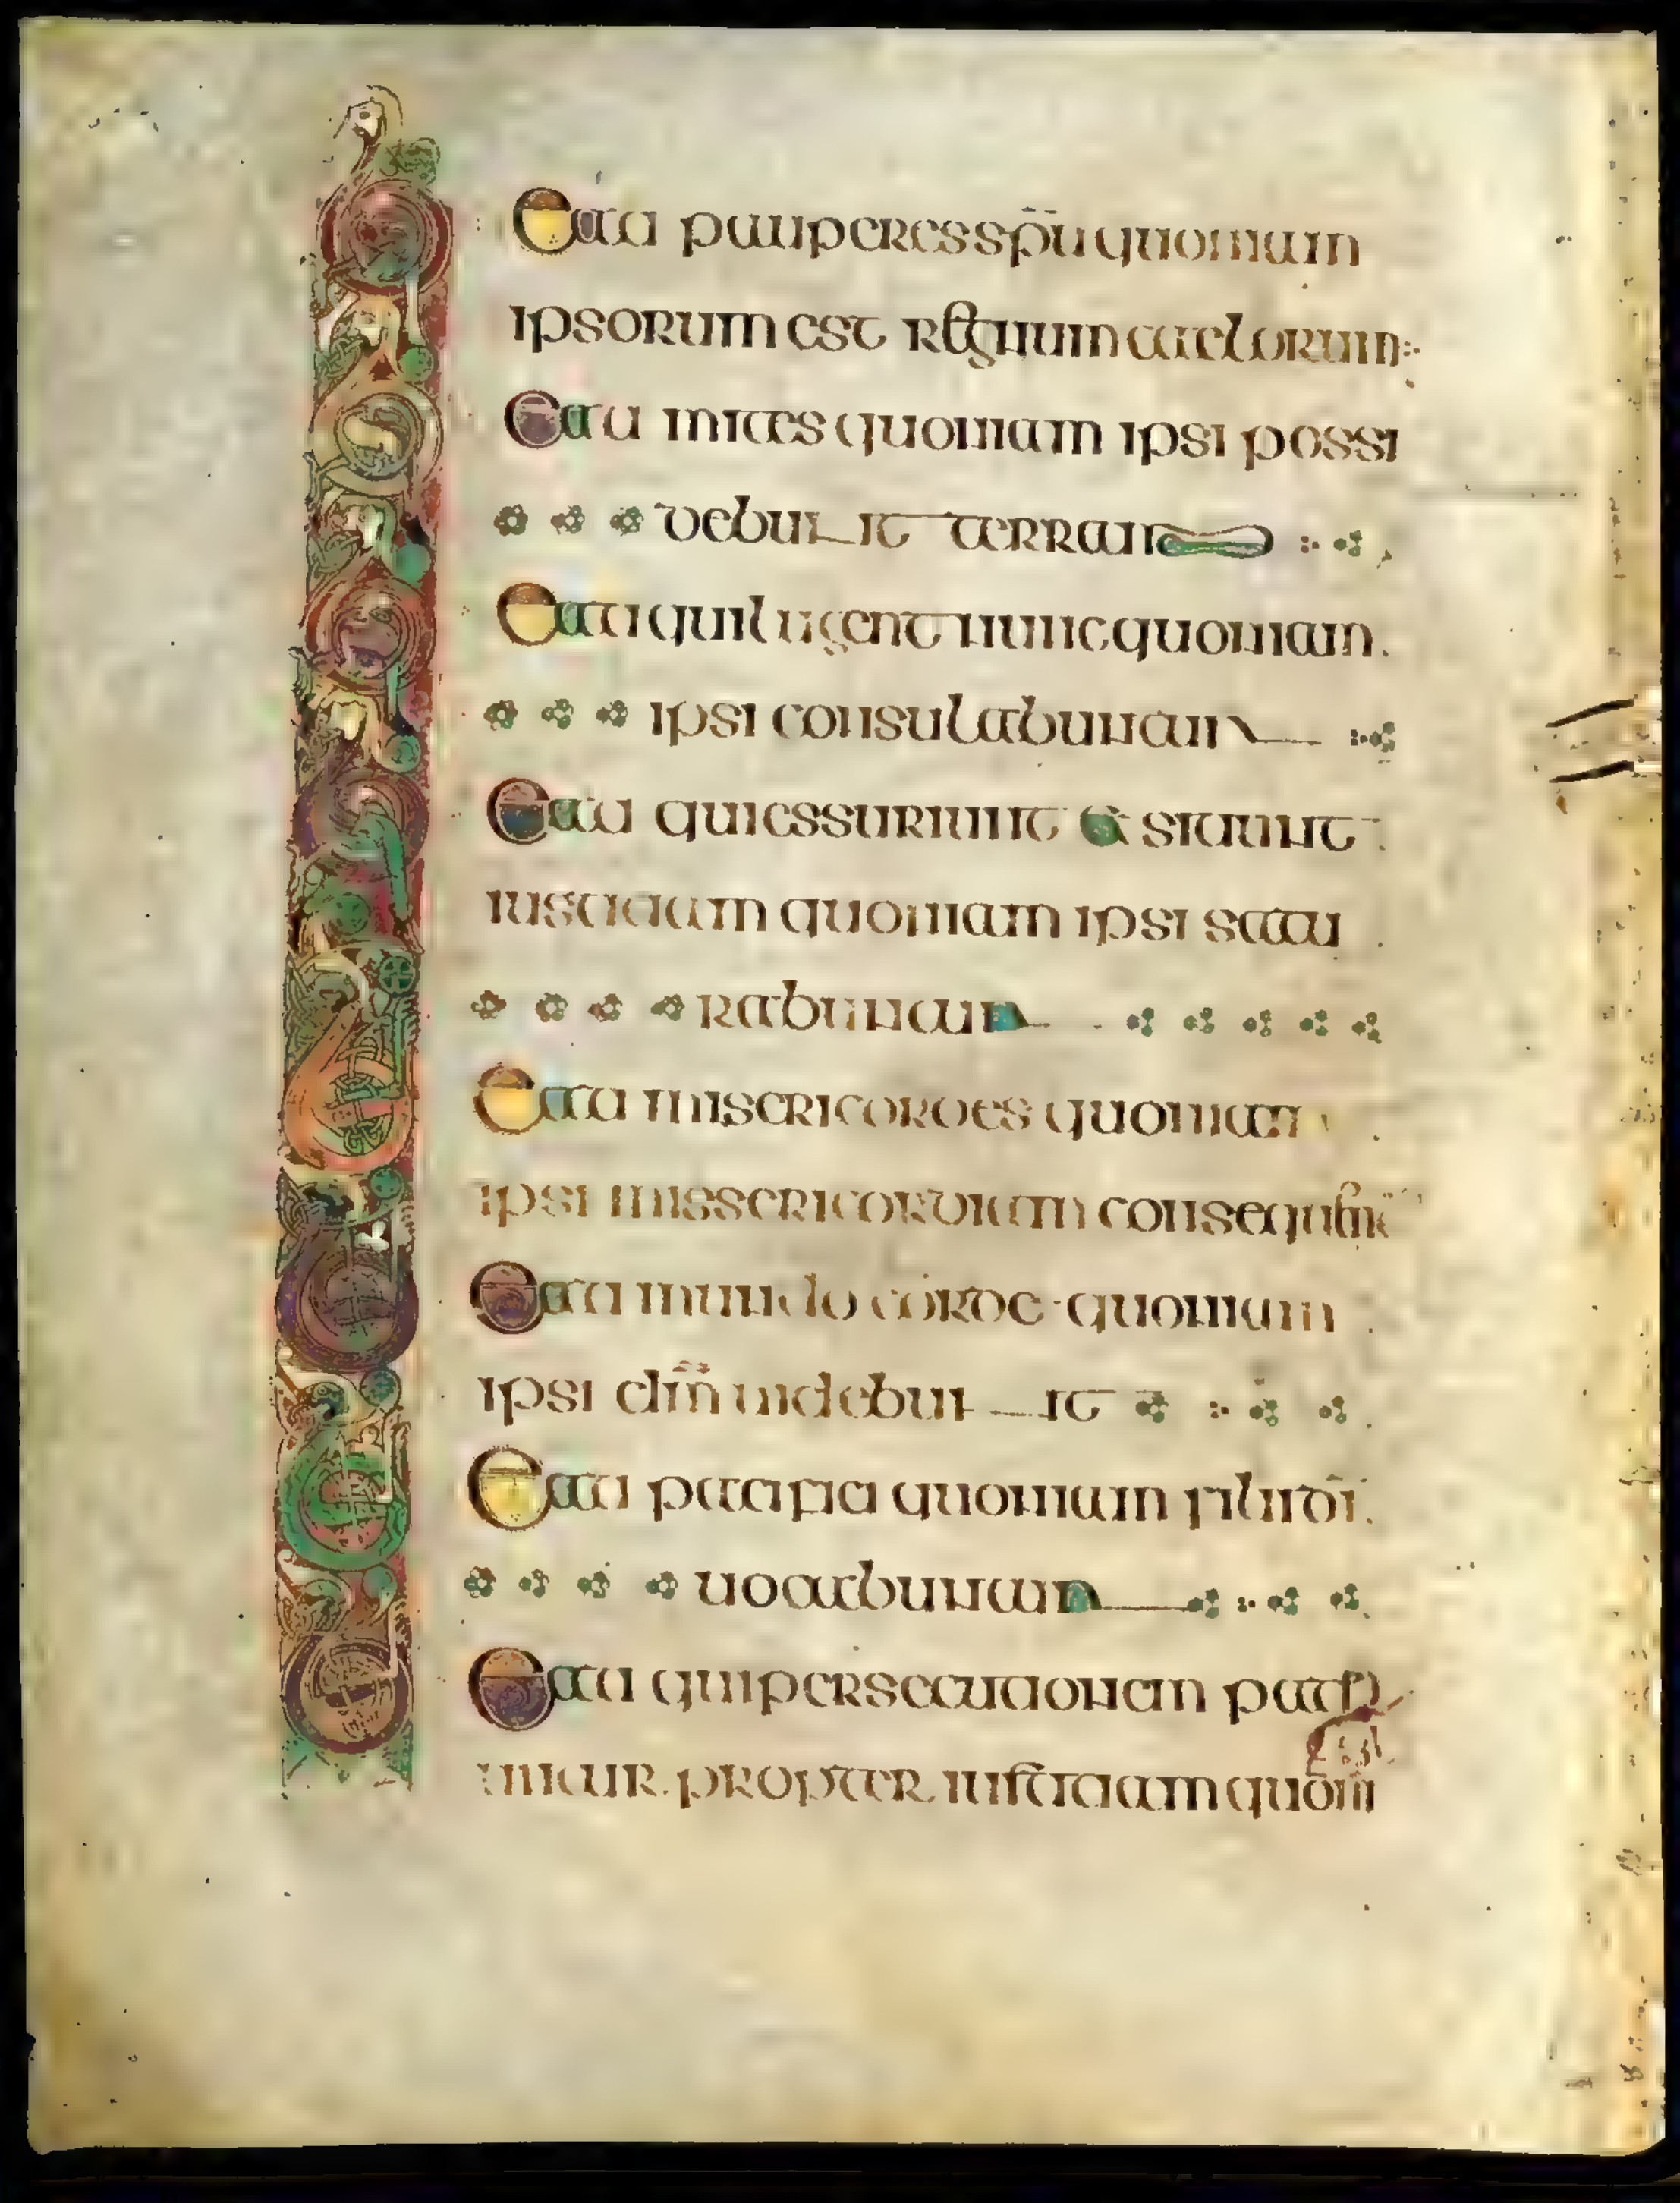 Eati pauperes spu quoniam
ipsorum est regnum caelorum
Eati mites quoniam ipsi possi
debunt terram
Eati qui lugent nunc quoniam
ipsi consulabuntur
Eati qui essuriunt et sitiunt
iustitiam quoniam ipsi satu
rabuntur
Eati misericordes quoniam
ipsi missericordiam consequntur
Eati mundo corde quoniam
ipsi dnm uidebunt
Eati pacifici quoniam filii di
uocabuntur
Eati qui persecutionem pati
untur propter iustitiam quom